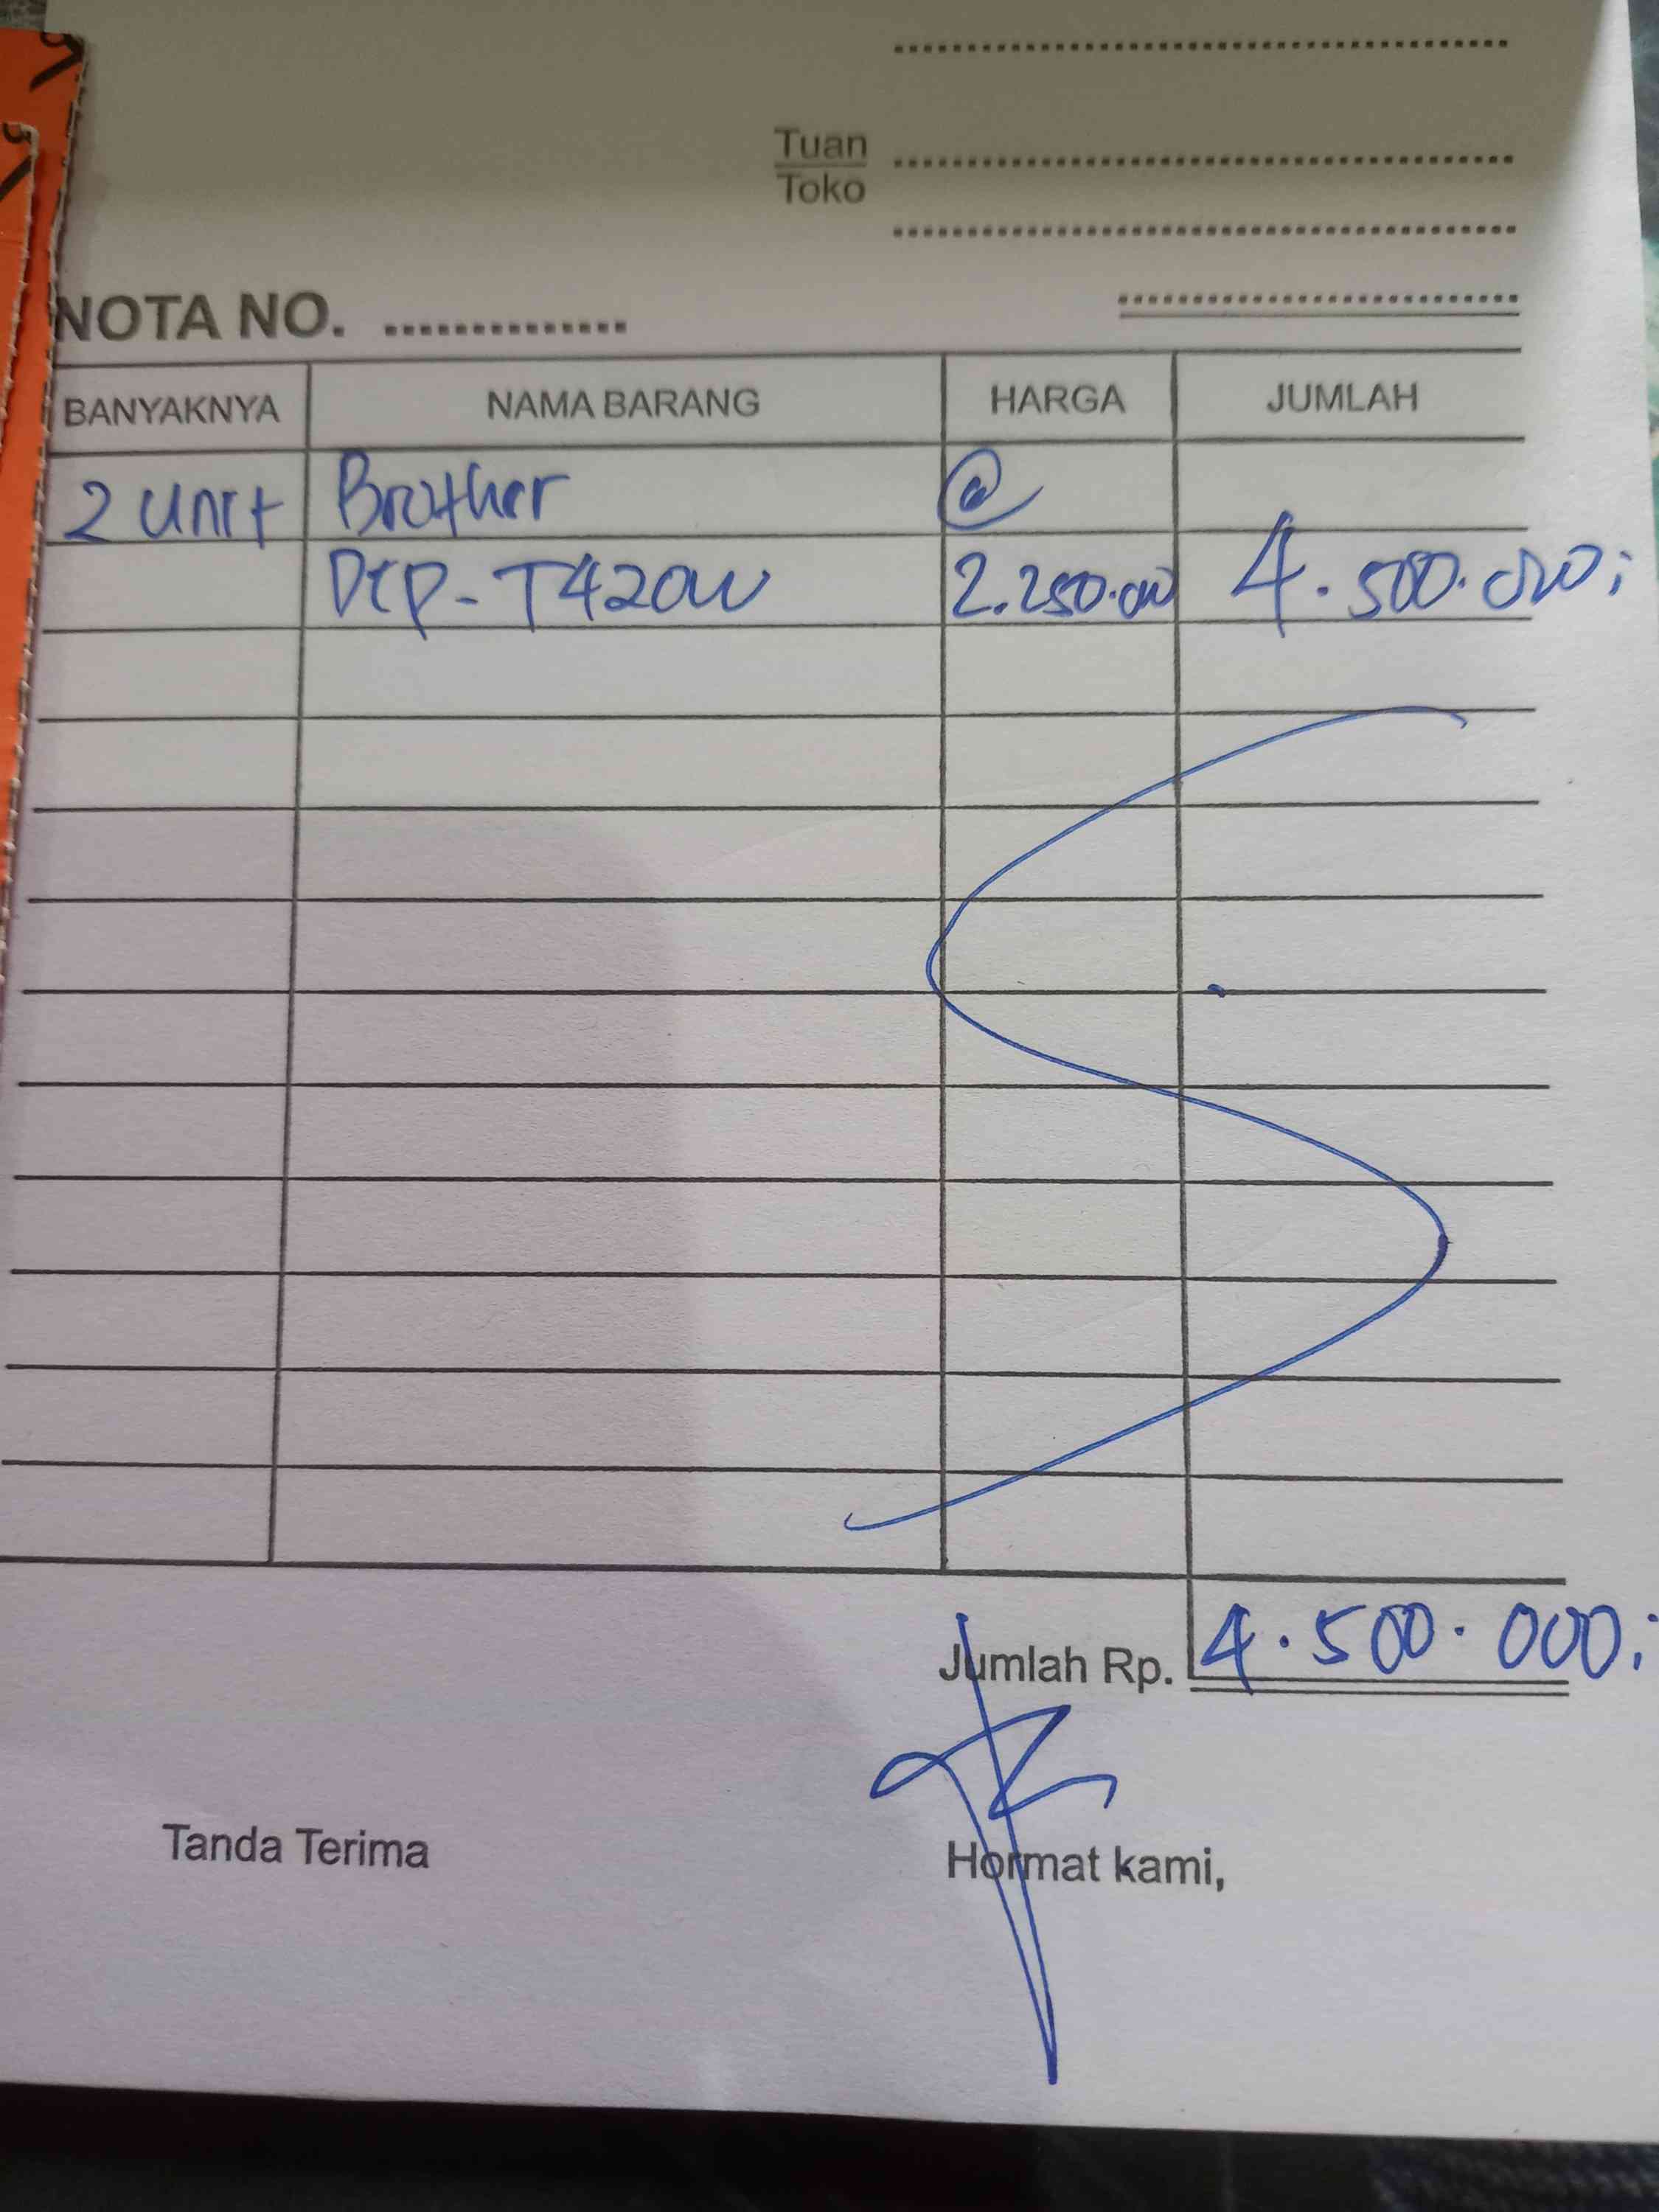 Tuan
Toko
NOTA NO. ..............
BANYAKNYA NAMA BARANG HARGA JUMLAH
2 Unit Brother @
DCP-T420W 2.250.000 4.500.000;
Jumlah Rp. 4.500.000;
Tanda Terima Hormat kami,